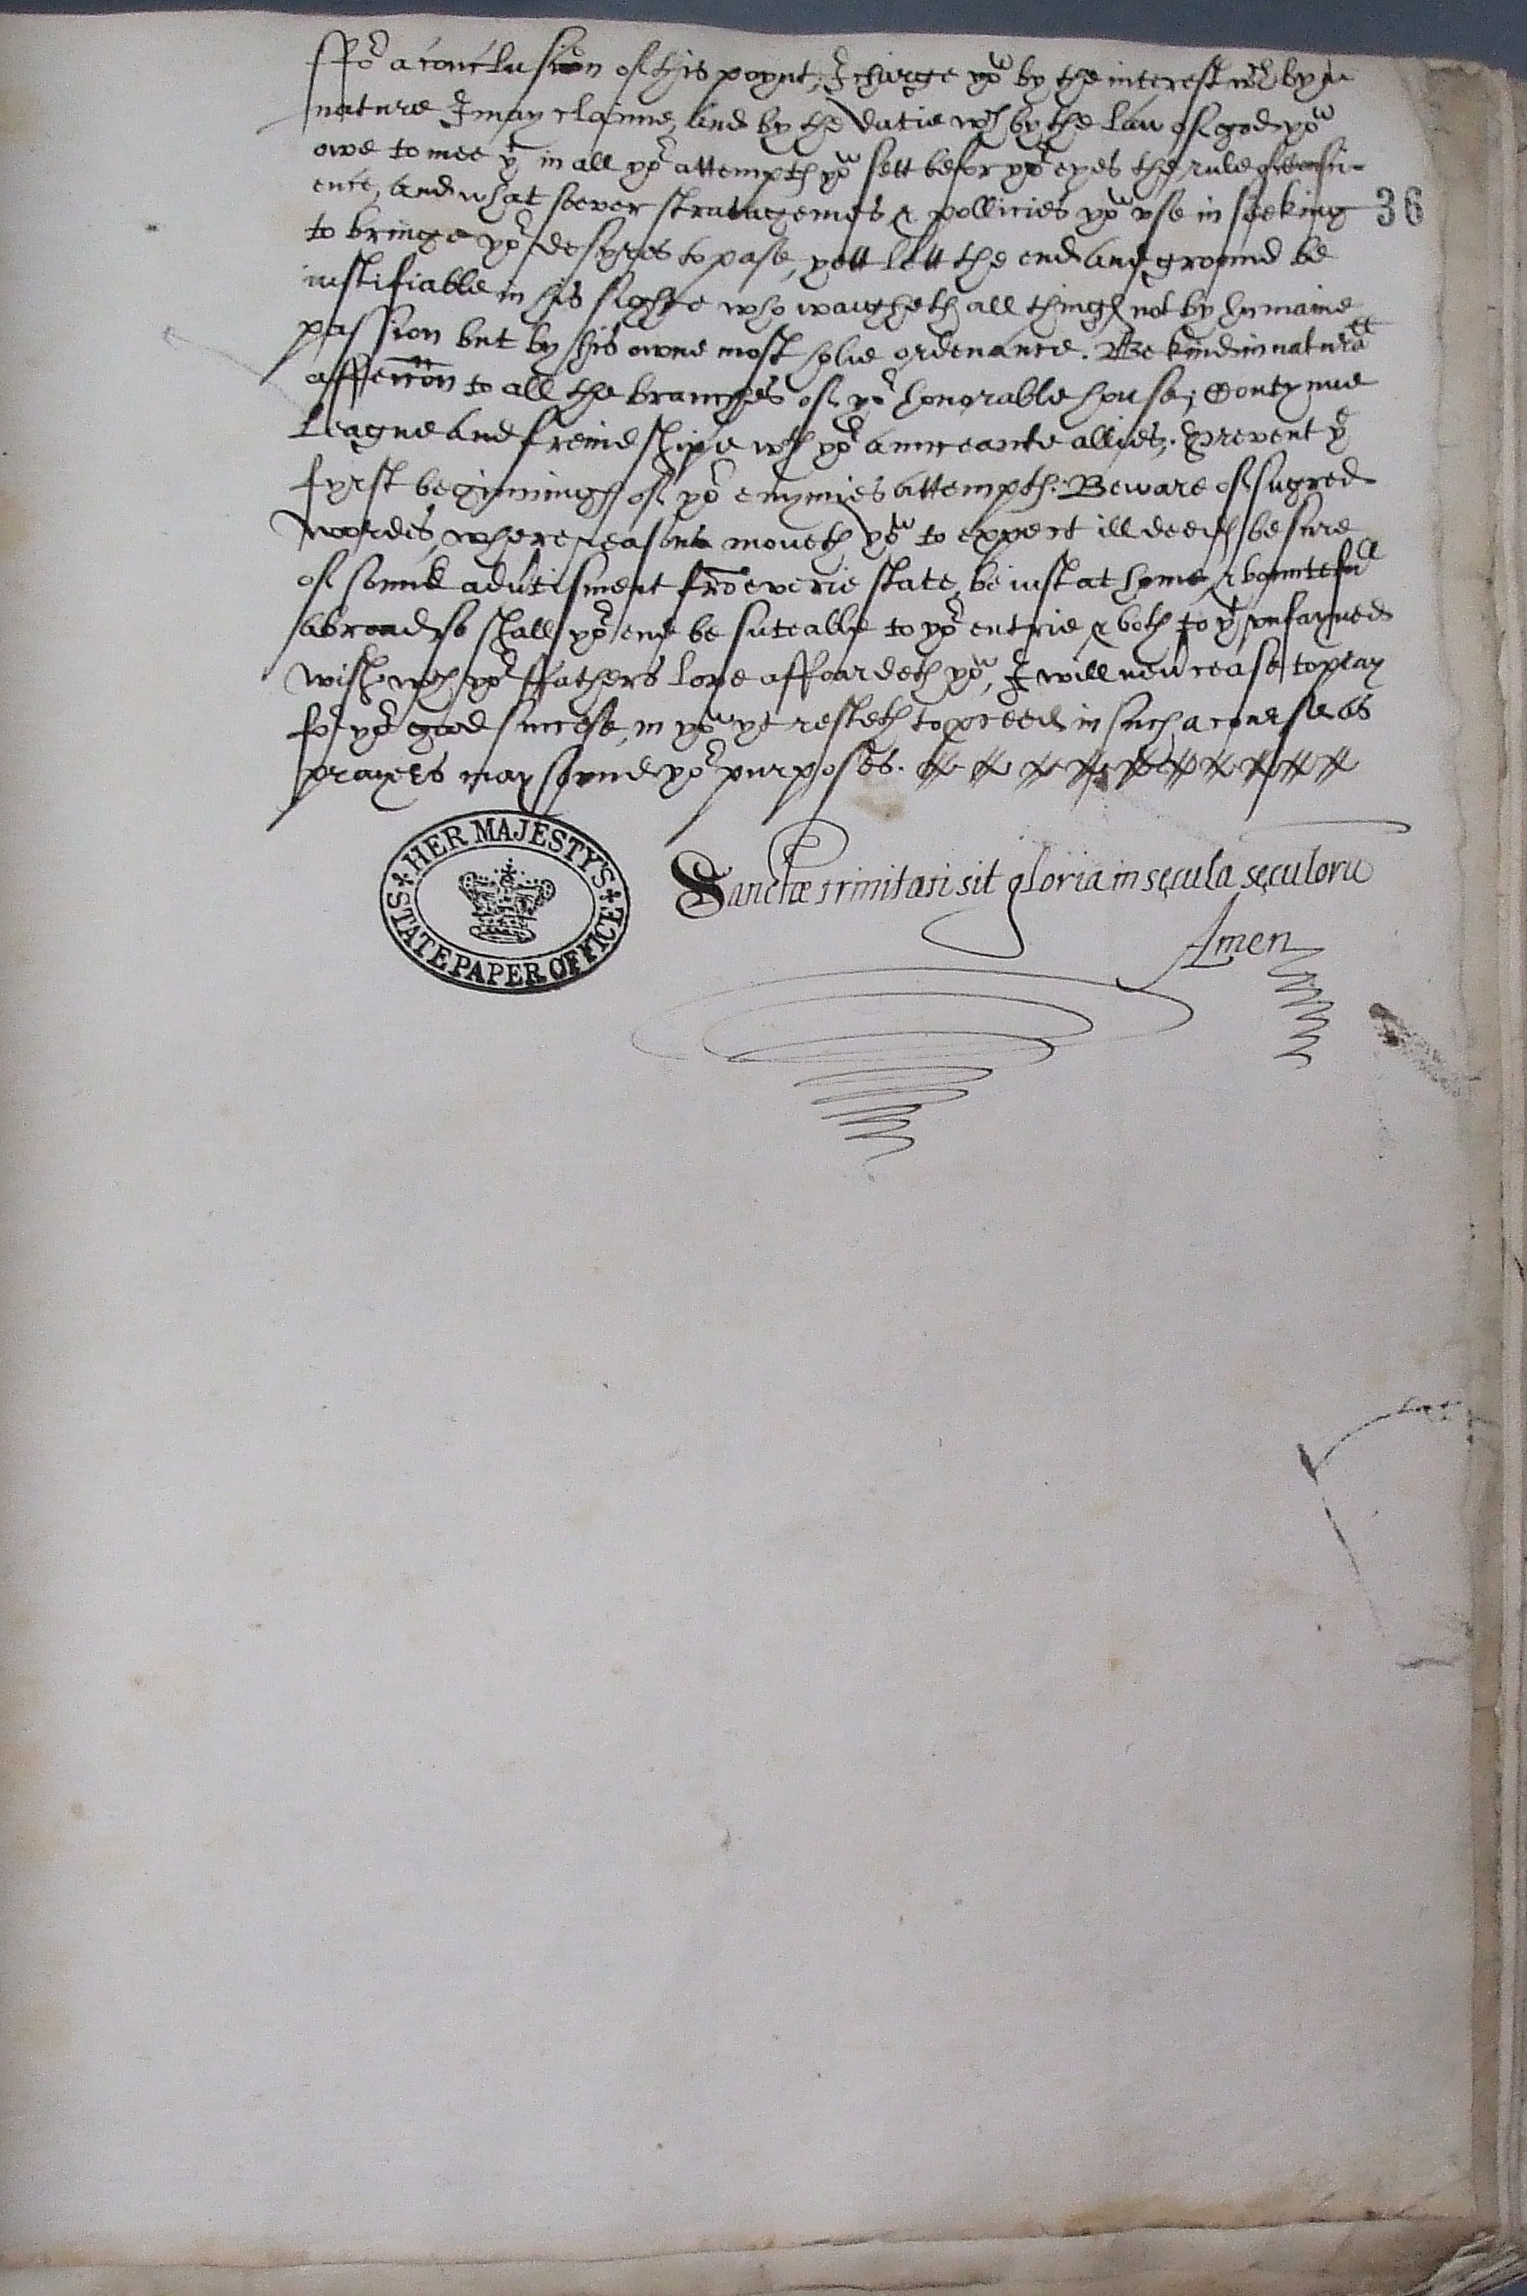 ffor a conclusion of this poynt, I charge yow by the interest wch by
nature I may claime, and by the dutie wch by the law of god yow
owe to mee yt in all yor attempts yow sett befor yor eyes the rule of consci-
ence, and what soever stratagemes & pollicies yow vse in seeking
36
to bringe yor desyres to pase, yett lett the end and ground be
iustifiable in his sighte who waigheth all things not by humaine
passion but by his owne most holie ordenance. Be kind in naturall
affeccion to all the branches of yor honorable house; Contynue
league and freindshipe wth yor aunceante allies; Prevent ye
fyrst beginnings of yor enymies attempts. Beware of sugred
wordes, where reasons moueth yow to expect ill deeds, be sure
of sound aduertisment from everie state, be iust at home, & bountefull
abroad, so shall yor end be suteable to yor entrie & both to yt vnfayned
wish wch yor ffathers love affoardeth yow, I will neuer cease to pray
for yor good succese, in yow yt resteth to proceed in such a course as
prayers may sound yor purposes.
Sanctæ trinitati sit gloria in secula seculoru
Amen
HER MAJESTY'S
STATE PAPER OFFICE